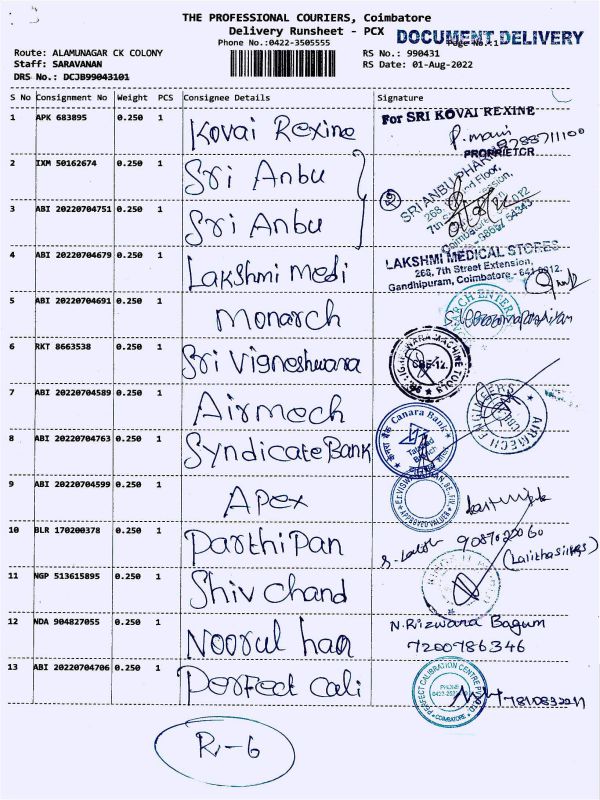 THE PROFESSIONAL COURIERS, Coimbatore
Delivery Runsheet - PCX
DOCUMENT DELIVERY
Phone No.:0422-3505555
Page No.:1
Route: ALAMUNAGAR CK COLONY
RS No.: 990431
Staff: SARAVANAN
RS Date: 01-Aug-2022
DRS No.: DCJB99043101
S No Consignment No Weight PCS Consignee Details Signature
1 APK 683895 0.250 1 Kovai Rexine
For SRI KOVAI REXINE
9788711100
PROPRIETOR
2 IXM 50162674 0.250 1 Sri Anbu
SRI ANBU PHARMA
3 ABI 20220704751 0.250 1 Sri Anbu
4 ABI 20220704679 0.250 1 Lakshmi medi
LAKSHMI MEDICAL STORES
268, 7th Street Extension,
Gandhipuram, Coimbatore - 641 012.
5 ABI 20220704691 0.250 1 monarch
6 RKT 8663538 0.250 1 Sri Vigneshwara
CBE-12.
7 ABI 20220704589 0.250 1 Airmech
AIRMECH ENGINEERS
8 ABI 20220704763 0.250 1 Syndicate Bank
Canara Bank
9 ABI 20220704599 0.250 1 Apex
APPROVED VALUER
10 BLR 170200378 0.250 1 Parthipan
(Lalitha silks)
11 NGP 513615895 0.250 1 Shiv chand
12 NDA 904827055 0.250 1 Noorul haq
N. Rizwara Bagum
7200786346
13 ABI 20220704706 0.250 1 Perfect cali
PERFECT CALIBRATION CENTRE
COIMBATORE
R-6